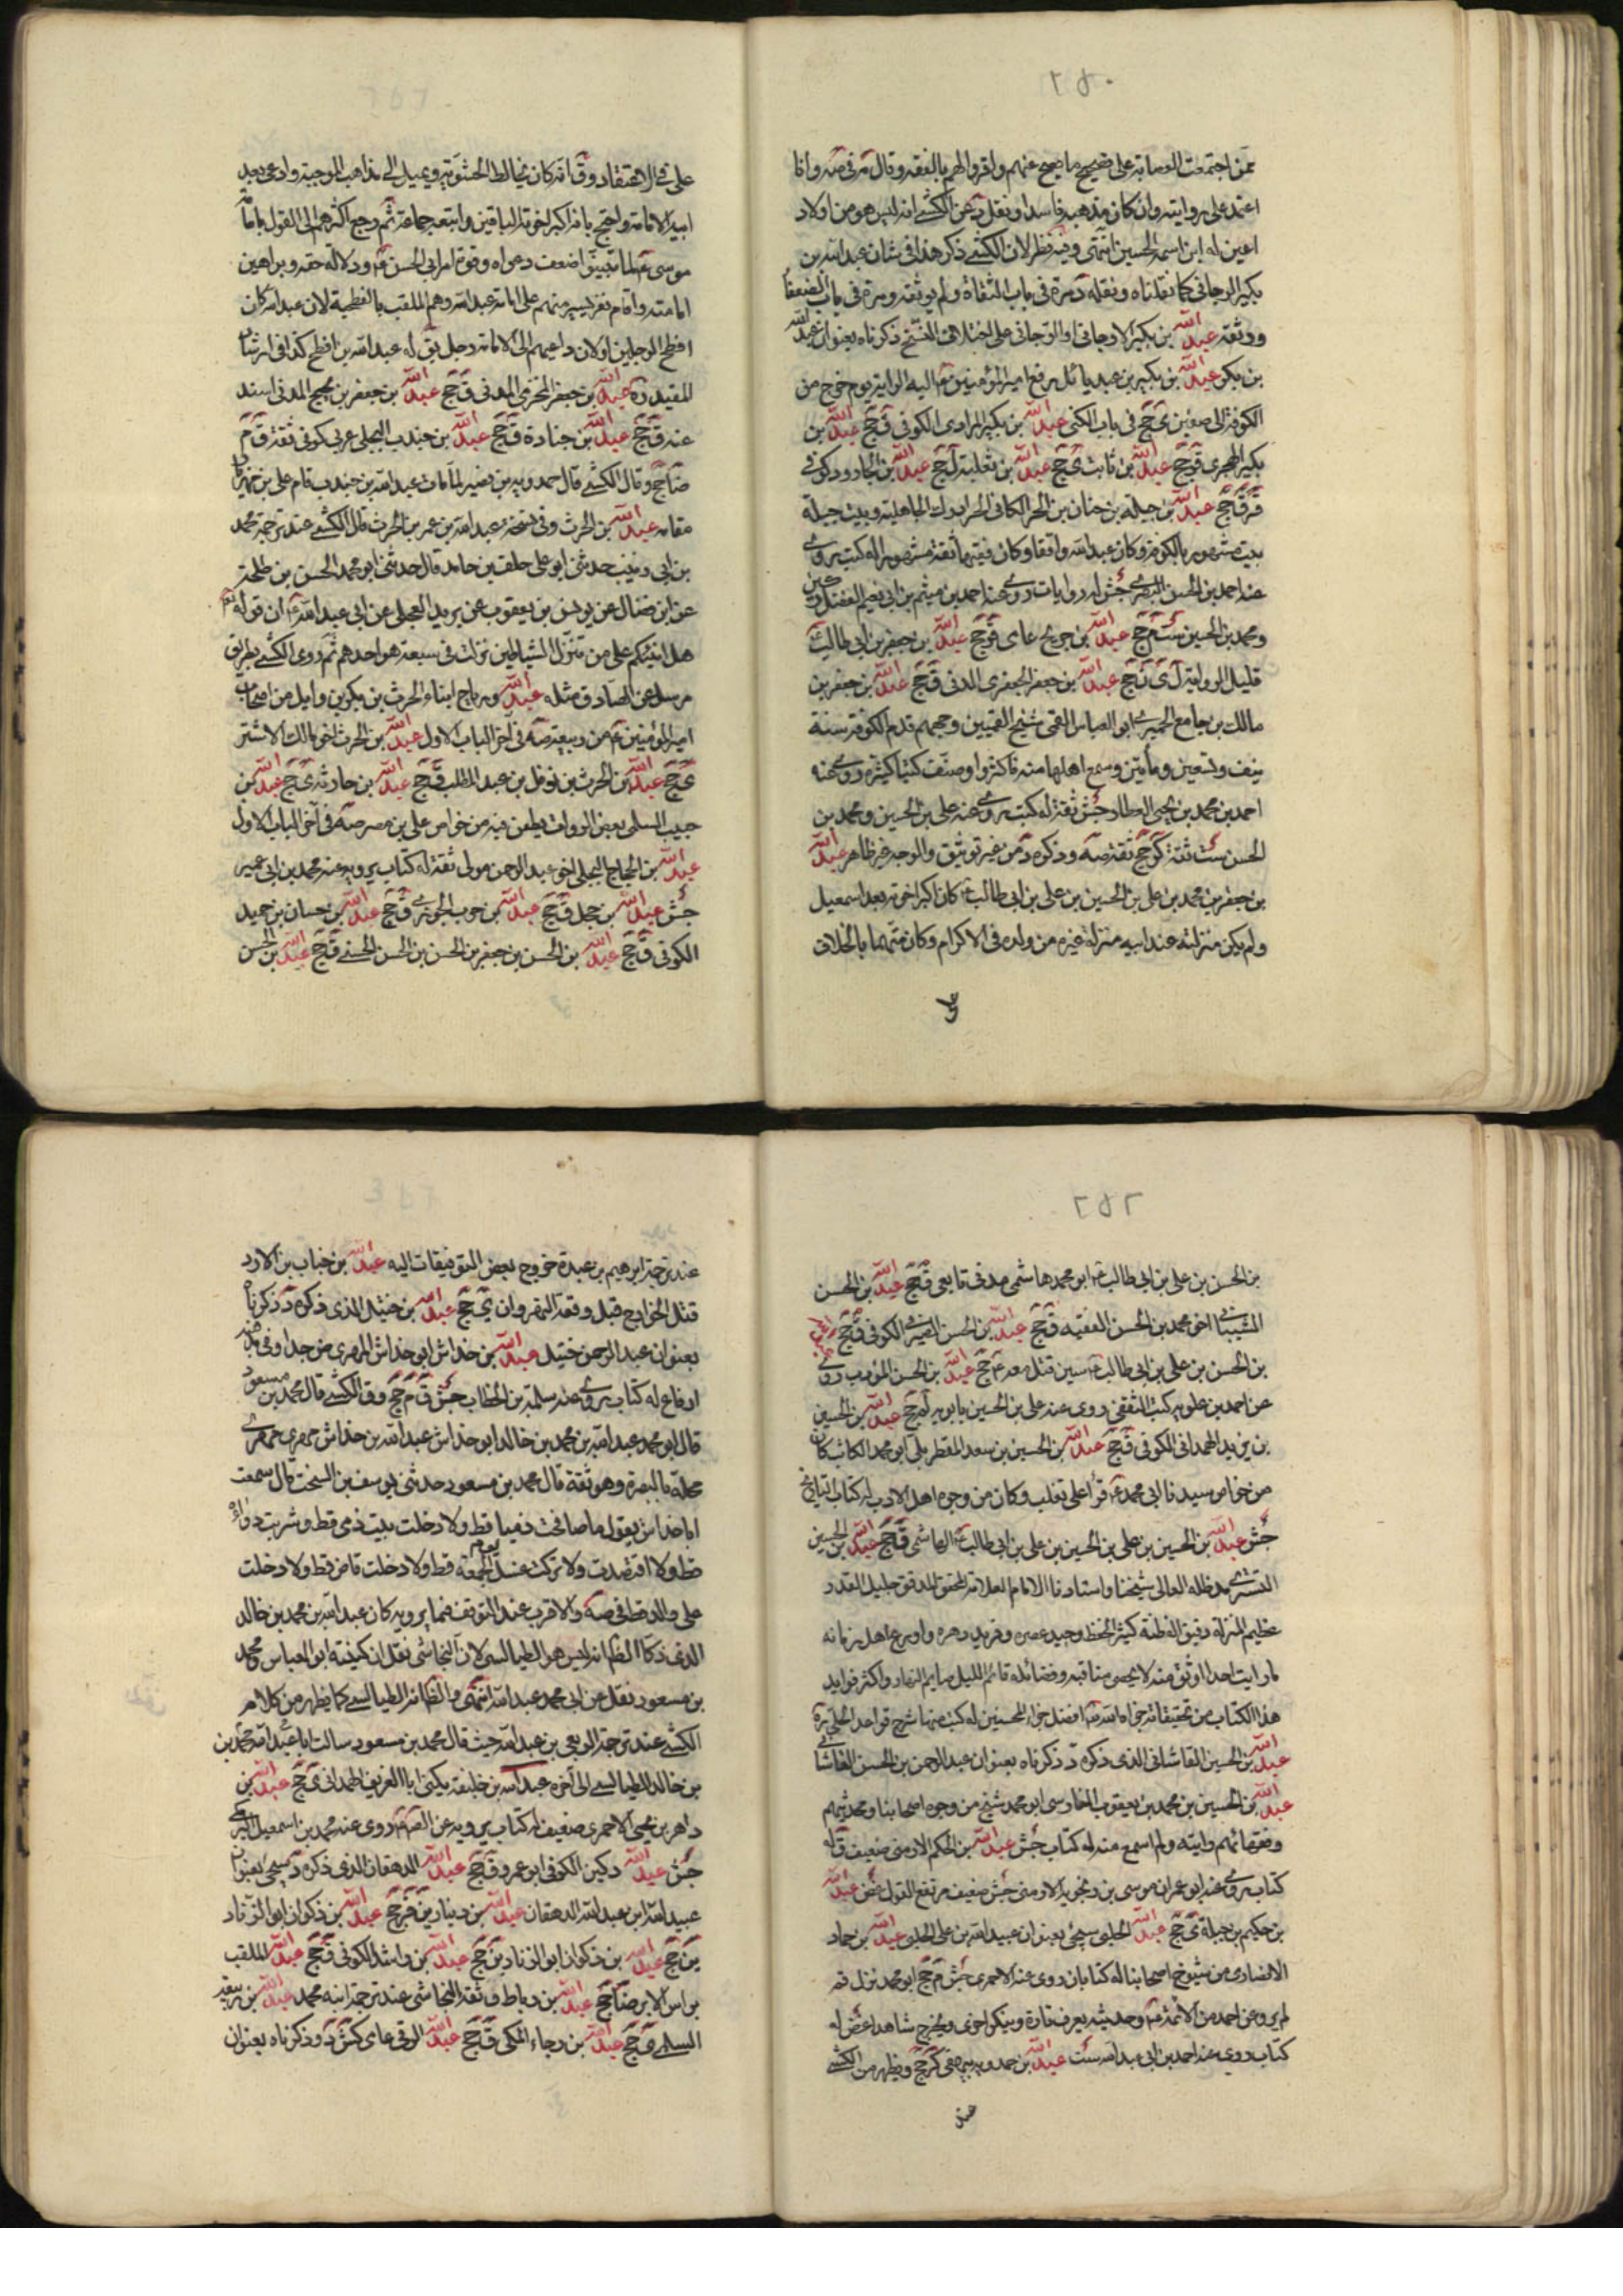 ٢٥٠
ممن اجتمعت العصابة على تصحيح ما يصح عنهم واقروا لهم بالفقه وقال في صه وانا
اعتمد على روايته وان كان مذهبه فاسدا ونقل د عن الكشي انه ليس هو من اولاد
اعين له ابن اسمه الحسين انتهى وفيه نظر لان الكشي ذكر هذا في شان عبد الله بن
بكير الرجاني كما نقلناه ونقله د مرة في باب الثقاة ولم يوثقه ومرة في باب الضعفا
ووثقه عبد الله بن بكير الارجاني او الرجاني على اختلاف النسخ ذكرناه بعنوان عبد الله
بن بكر عبد الله بن بكير بن عبد يائل رفع امير المؤمنين ع اليه الراية يوم خرج من
الكوفة الى صفين ى جخ في باب الكنى عبد الله بن بكير المرادي الكوفي ق جخ عبد الله بن
بكير الهجري ق جخ عبد الله بن ثابت ى جخ عبد الله بن ثعلبة ل جخ عبد الله بن الجارود كوفي
قر ق جخ عبد الله بن جبلة بن حنان بن الحر الكناني الحر ادرك الجاهلية وبيت جبلة
بيت مشهور بالكوفة وكان عبد الله واقفا وكان فقيها ثقة مشهورا له كتب روى
عنه احمد بن الحسن البصري جش له روايات روى عنه احمد بن ميثم بن ابي نعيم الفضل بن دكين
ومحمد بن الحسين ست م جخ عبد الله بن جريح عامى ق جخ عبد الله بن جعفر بن ابي طالب
قليل الرواية ل ى ن جخ عبد الله بن جعفر الجعفري المدني ق جخ عبد الله بن جعفر بن
مالك بن جامع الحميري ابو العباس القمي شيخ القميين ووجههم قدم الكوفة سنة
نيف وتسعين ومأتين وسمع اهلها منه فاكثروا وصنف كتبا كثيرة روى عنه
احمد بن محمد بن يحيى العطار جش ثقة له كتب روى عنه علي بن الحسين ومحمد بن
الحسن ست ثقة كر جخ ثقة صه وذكره د من غير توثيق والوجه غير ظاهر عبد الله
بن جعفر بن محمد بن علي بن الحسين بن علي بن ابي طالب ع كان اكبر اخوته بعد اسمعيل
ولم يكن منزلته عند ابيه منزلة غيره من ولده في الاكرام وكان متهما بالخلاف
على
على في الاعتقاد وق انه كان يخالط الحشوية ويميل الى مذاهب المرجئة وادعى بعد
ابيه الامامة واحتج بانه اكبر اخوته الباقين واتبعه جماعة ثم رجع اكثرهم الى القول بامامة
موسى ع لما تبينوا ضعف دعواه وقوة امر ابي الحسن ع ودلالة حقه وبراهين
امامته واقام نفر يسير منهم على امامة عبد الله وهم الملقب بالفطحية لان عبد الله كان
افطح الرجلين او لان داعيهم الى الامامة رجل يق له عبد الله بن افطح كذا في ارشاد
المفيد ره عبد الله بن جعفر المخزمي المدني ق جخ عبد الله بن جعفر بن نجيح المدني اسند
عنه ق جخ عبد الله بن جنادة ق جخ عبد الله بن جندب البجلي عربي كوفي ثقة ق م
ضا جخ وقال الكشي قال حمدويه بن نصير لما مات عبد الله بن جندب قام علي بن مهزيار
مقامه عبد الله بن الحرث وفي نسخة عبد الله بن عمر بن الحرث قال الكشي عند ترجمة محمد
بن ابي زينب حدثني ابو علي خلف بن حامد قال حدثني ابو محمد الحسن بن طلحة
عن ابن فضال عن يونس بن يعقوب عن بريد العجلي عن ابي عبد الله ع ان قوله تع
هل انبئكم على من تنزل الشياطين نزلت في سبعة هو احدهم ثم روى الكشي بطريق
مرسل عن الصادق مثله عبد الله ورباح ابناء الحرث بن بكر بن وايل من اصحاب
امير المؤمنين ع من ربيعة صه في اخر الباب الاول عبد الله بن الحرث اخو مالك الاشتر
ى جخ عبد الله بن الحرث بن نوفل بن عبد المطلب ق جخ عبد الله بن حارثه ى جخ عبد الله بن
حبيب السلمي بعض الرواة يطعن فيه من خواص علي بن مضر صه في آخر الباب الاول
عبد الله بن الحجاج البجلي اخو عبد الرحمن مولى ثقة له كتاب يرويه عنه محمد بن ابي عمير
جش عبد الله بن حجل ق جخ عبد الله بن حرب الجوزي ق جخ عبد الله بن حسان بن حميد
الكوفي ق جخ عبد الله بن الحسن بن جعفر بن الحسن بن الحسن الحسني ق جخ عبد الله بن الحسن
٢٥٢
بن الحسن بن علي بن ابي طالب ع ابو محمد هاشمي مدني تابعي ق جخ عبد الله بن الحسن
الشيباني اخو محمد بن الحسن الفقيه ق جخ عبد الله بن الحسن الصيرفي الكوفي ق جخ
بن الحسن بن علي بن ابي طالب ع سين قتل معه ع جخ عبد الله بن الحسن المؤدب روى
عن احمد بن علويه كتب الثقفي روى عنه علي بن الحسين بابويه لم جخ عبد الله بن الحسين
بن يزيد الهمداني الكوفي ق جخ عبد الله بن الحسين بن سعد القطربلي ابو محمد الكاتب كان
من خواص سيدنا ابي محمد ع قرأ على ثعلب وكان من وجوه اهل الادب له كتاب التاريخ
جش عبد الله بن الحسين بن علي بن الحسين بن علي بن ابي طالب ع الهاشمي ق جخ عبد الله بن الحسين
التستري مد ظله العالي شيخنا واستادنا الامام العلامة المحقق المدقق جليل القدر
عظيم المنزلة دقيق الفطنة كثير الحفظ وحيد عصره وفريد دهره واورع اهل زمانه
ما رايت احدا اوثق منه لا يحصى مناقبه وفضائله قائم الليل صايم النهار واكثر فوايد
هذا الكتاب من تحقيقاته جزاه الله تع افضل جزاء المحسنين له كتب منها شرح قواعد الحلي ره
عبد الله بن الحسين القاشاني الذي ذكره د ذكرناه بعنوان عبد الرحمن بن الحسن القاشاني
عبد الله بن الحسين بن محمد بن يعقوب الفارسي ابو محمد شيخ من وجوه اصحابنا ومحدثيهم
وفقهائهم رايته ولم اسمع منه له كتاب جش عبد الله بن الحكم الارمني ضعيف ق له
كتاب روى عنه ابو عمران موسى بن زنجويه الارمني جش ضعيف مرتفع القول غض عبد الله
بن حكيم بن جبلة ى جخ عبد الله الحلبي سيجئ بعنوان عبيد الله بن علي الحلبي عبد الله بن حماد
الانصاري من شيوخ اصحابنا له كتابان روى عنه الاحمري جش م جخ ابو محمد نزل قم
لم يرو عن احد من الائمة ع وحديثه يعرف تارة وينكر اخرى ويخرج شاهدا غض له
كتاب روى عنه احمد بن ابي عبد الله ست عبد الله بن حمدويه بيهقي كر جخ ويظهر من الكشي
عند
عند ترجمة ابرهيم بن عبدة خروج بعض التوقيعات اليه عبد الله بن خباب بن الارت
قتله الخوارج قبل وقعة النهروان ى جخ عبد الله بن ختيل الذي ذكره د ذكرناه
بعنوان عبد الرحمن ختيل عبد الله بن خداش ابو خداش المهري ضعيف جدا وفي مذهبه
ارتفاع له كتاب روى عنه سلمة بن الخطاب جش ق م جخ وق الكشي قال محمد بن مسعود
قال ابو محمد عبد الله بن محمد بن خالد ابو خداش عبد الله بن خداش مهري مهرة
محلة بالبصرة وهو ثقة قال محمد بن مسعود حدثني يوسف بن السخت قال سمعت
ابا خداش يقول ما صافحت ذميا قط ولا دخلت بيت ذمي قط وشربت دواء
قط ولا افتصدت ولا تركت غسل يوم الجمعة قط ولا دخلت قاض قط ولا دخلت
على وال قط في صه والاقرب عندي التوقف فيما يرويه كان عبد الله بن محمد بن خالد
الذي زكاه الظ انه ليس هو الطيالسي لان النجاشي نقل ان كنيته ابو العباس ومحمد
بن مسعود نقل عن ابي محمد عبد الله انتهى والظ انه الطيالسي كما يظهر من كلام
الكشي عند ترجمة الربعي بن عبد الله حيث قال محمد بن مسعود سالت ابا عبد الله محمد بن
بن خالد الطيالسي الى آخره عبد الله بن خليفة يكنى ابا الغريف الهمداني ى جخ عبد الله بن
داهر بن يحيى الاحمري ضعيف له كتاب يرويه عن ابي عبد الله ع روى عنه محمد بن اسمعيل البرمكي
جش عبد الله دكين الكوفي ابو عمرو ق جخ عبد الله الدهقان الذي ذكره د سيجئ بعنوان
عبيد الله بن عبد الله الدهقان عبد الله بن دينار ين قر جخ عبد الله بن ذكوان ابو الزناد
ين جخ عبد الله بن ذكوان ابو الزناد ين جخ عبد الله بن راشد الكوفي ق جخ عبد الله الملقب
براس الابر ضا جخ عبد الله بن رباط ق ثقة النجاشي عند ترجمة ابنه محمد عبد الله بن ربيعة
السلمي ى جخ عبد الله بن رجاء المكي ق جخ عبد الله الرقي عامى كش د وذكرناه بعنوان